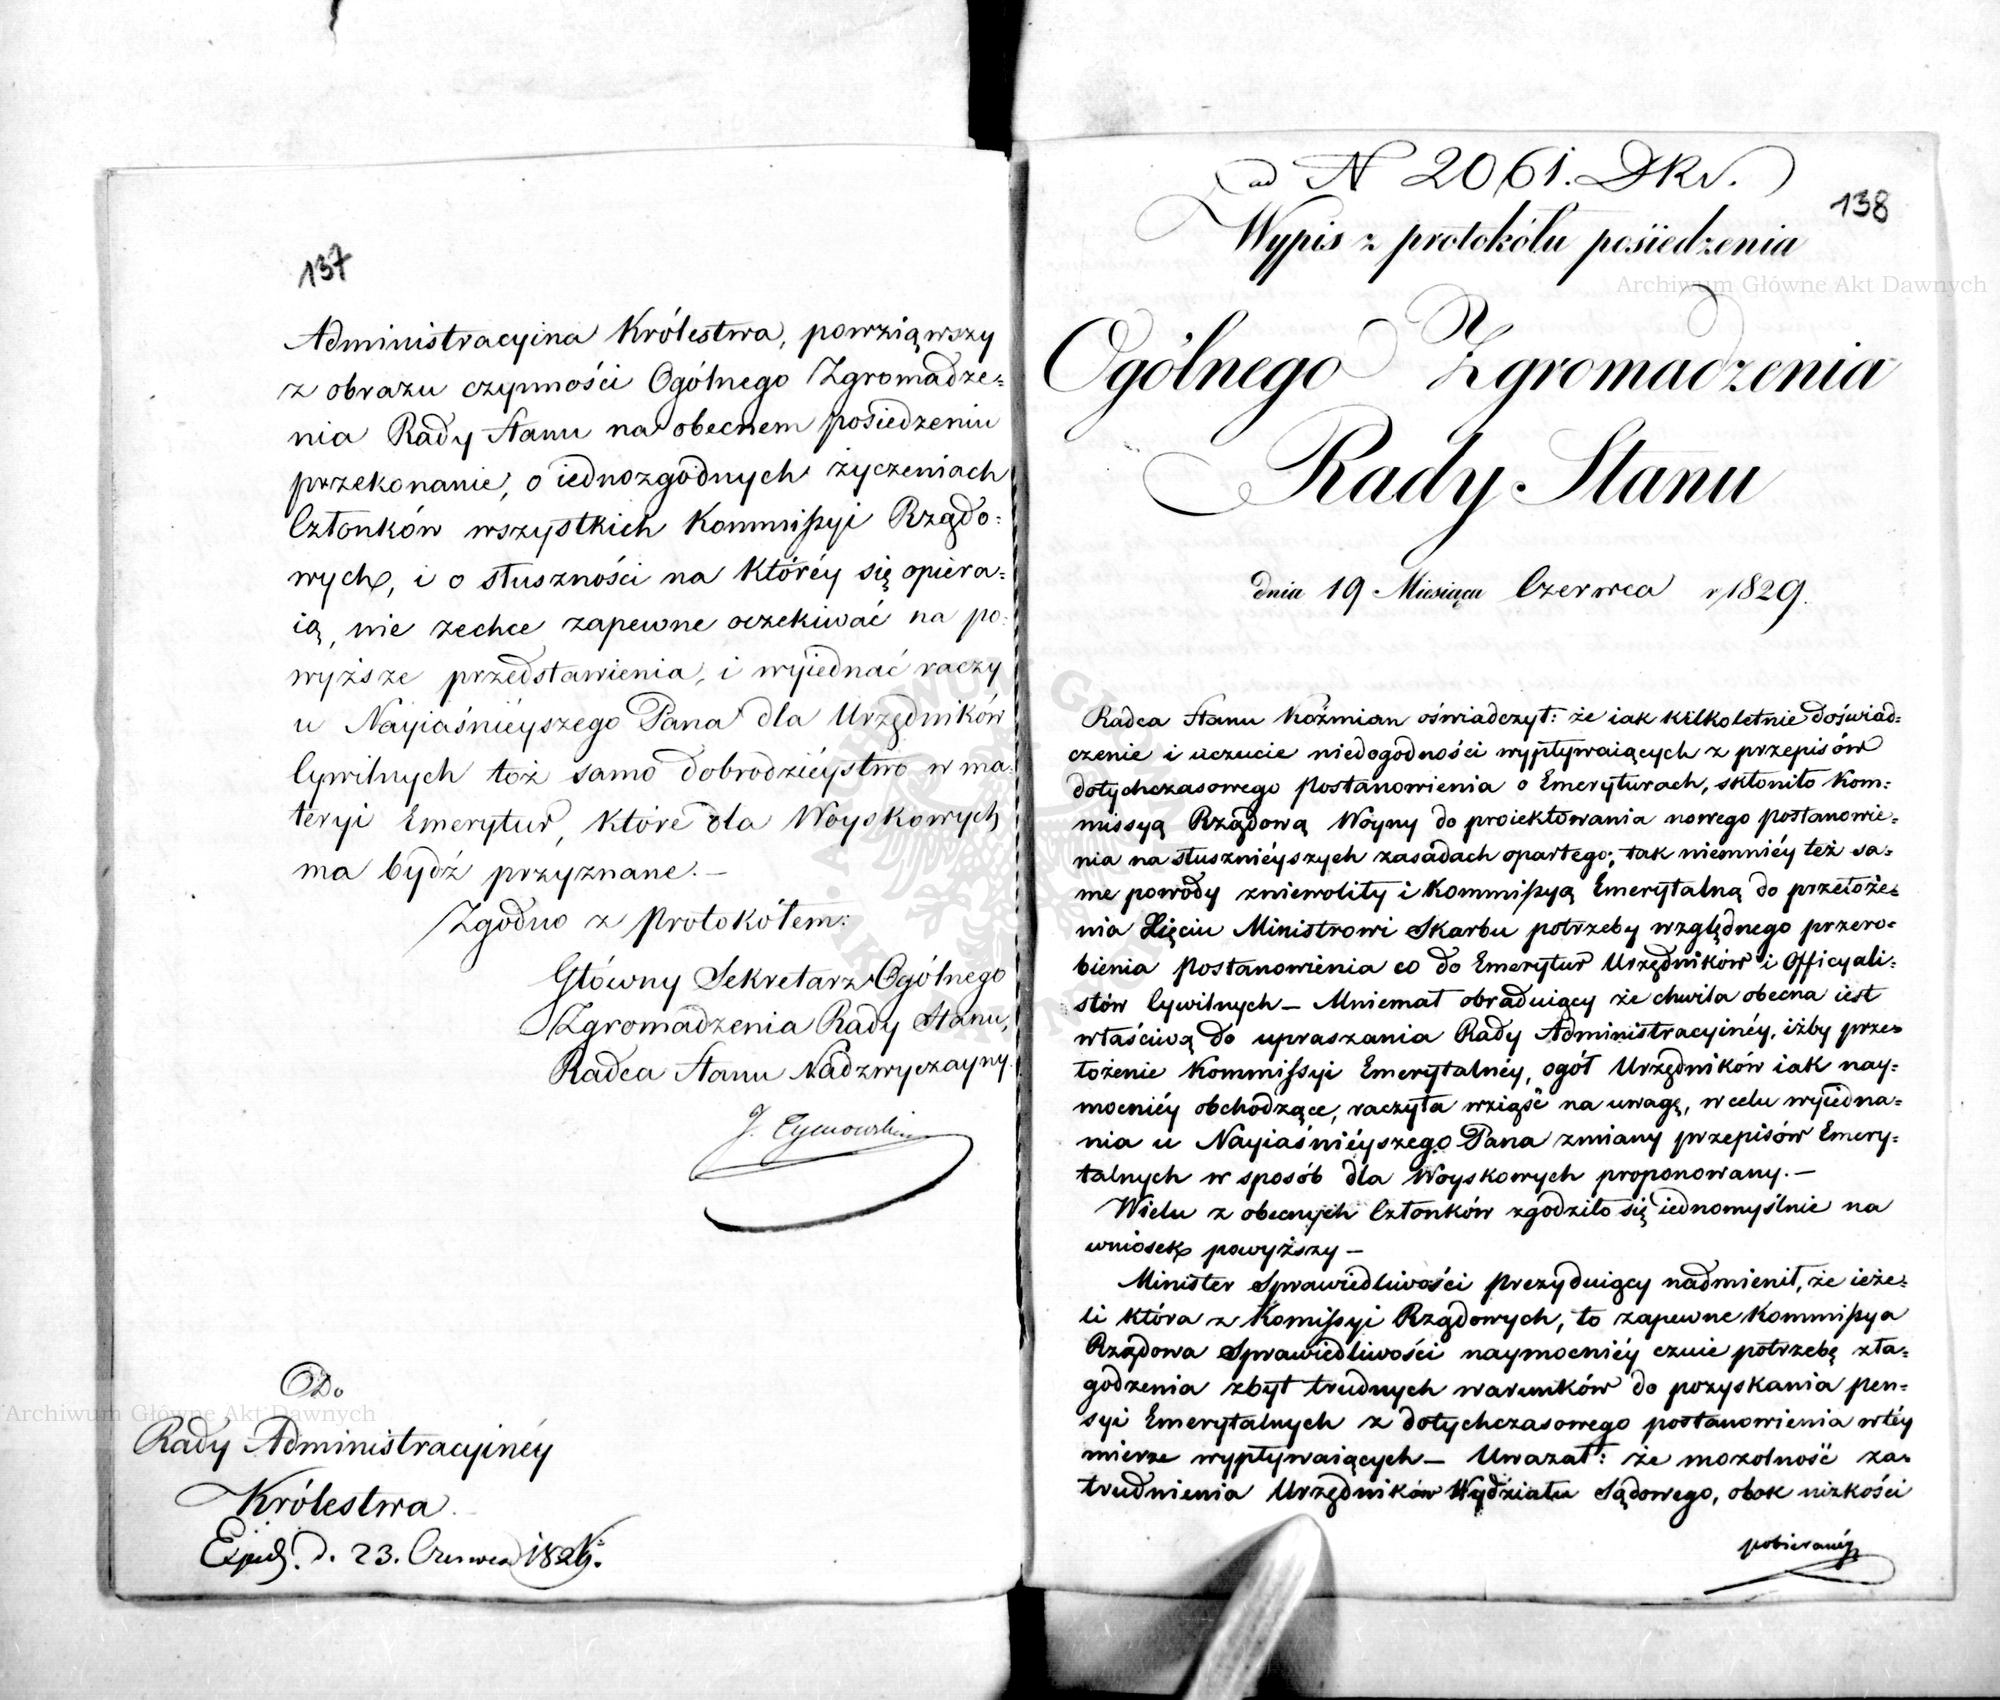 137
Administracyina Królestwa, powziąwszy
z obrazu czynności Ogólnego Zgromadze=
nia Rady Stanu na obecnem posiedzeniu
przekonanie, o iednozgodnych życzeniach
Członków wszystkich Kommissyi Rządo=
wych, i o słuszności na któréy się opiera=
ią, nie zechce zapewne oczekiwać na po=
wyższe przedstawienia, i wyiednać raczy
u Nayiaśnieyszego Pana dla Urzędników
Cywilnych toż samo dobrodzieystwo w ma=
teryi Emerytur, które dla Woyskowych
ma bydź przyznane.—
Zgodno z Protokółem:
Główny Sekretarz Ogólnego
Zgromadzenia Rady Stanu,
Radca Stanu Nadzwyczayny.
J. Tymowski
Do
Rady Administracyinéy
Królestwa.
Exped. d. 23. Czerwca
ad N 2061. DKr.
138
Wypis z protokółu posiedzenia
Ogólnego Zgromadzenia
Rady Stanu
dnia 19 Miesiąca Czerwca r 1829.
Radca Stanu Koźmian oświadczył: że iak kilkoletnie doświad=
czenie i uczucie niedogodności wypływaiących z przepisów
dotychczasowego Postanowienia o Emeryturach, skłoniło Kom=
missyą Rządową Woyny do proiektowania nowego postanowie=
nia na słusznieyszych zasadach opartego; tak niemniéy też sa=
me powody zniewoliły i Kommissyą Emerytalną do przełoże=
nia Xięciu Ministrowi Skarbu potrzeby względnego przero=
bienia Postanowienia co do Emerytur Urzędników i Officyali=
stów Cywilnych — Mniemał obraduiący że chwila obecna iest
właściwą do upraszania Rady Administracyinéy, iżby prze=
łożenie Kommissyi Emerytalnéy, ogół Urzędników iak nay=
mocniéy obchodzące, raczyła wziąść na uwagę, w celu wyiedna=
nia u Nayiaśnieyszego Pana zmiany przepisów Emery=
talnych w sposób dla Woyskowych proponowany.—
Wielu z obecnych Członków zgodziło się iednomyślnie na
wniosek powyższy —
Minister Sprawiedliwości Prezyduiący nadmienił, że ieże=
li która z Komissyi Rządowych, to zapewne Kommissya
Rządowa Sprawiedliwości naymocniéy czuie potrzebę zła=
godzenia zbyt trudnych warunków do pozyskania pen=
syi Emerytalnych z dotychczasowego postanowienia w téy
mierze wypływaiących — Uważał: że mozolność za=
trudnienia Urzędników Wydziału Sądowego, obok nizkości
pobieranéy
Archiwum Główne Akt Dawnych
Archiwum Główne Akt Dawnych